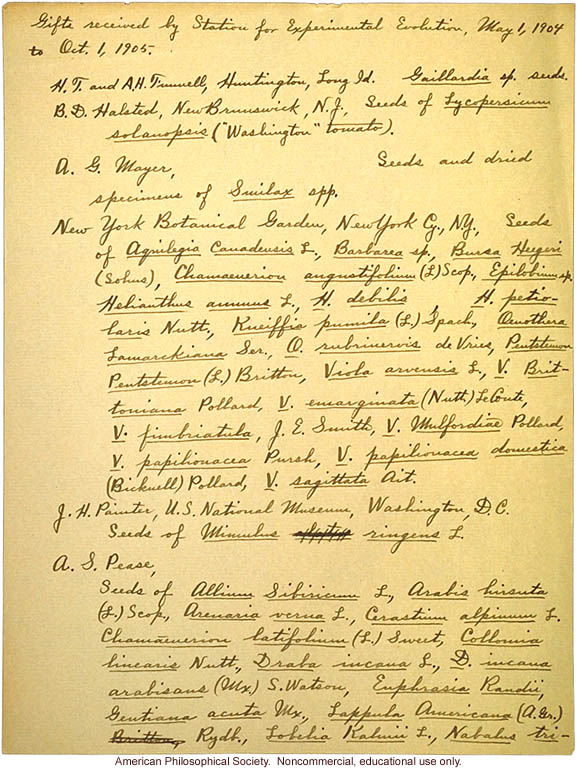 Gifts received by Station for Experimental Evolution, May 1, 1904
to Oct. 1, 1905.
H. T. and A.H. Funnell, Huntington, Long Id. Gaillardia sp. seeds.
B. D. Halsted, New Brunswick, N.J., Seeds of Lycopersicum
solanopsis ("Washington" tomato).
A. G. Mayer, Seeds and dried
specimens of Smilax spp.
New York Botanical Garden, New York Cy., N.Y., Seeds
of Aquilegia Canadensis L., Barbarea sp., Bursa Heegeri
(Solms), Chamaenerion angustifolium (L) Scop, Epilobium sp.
Helianthus annuus L., H. debilis, H. petio-
laris Nutt., Kneiffia pumila (L.) Spach., Oenothera
Lamarckiana Ser., O. rubrinervis de Vries, Pentstemon
Pentstemon (L.) Britton, Viola arvensis L., V. Brit-
toniana Pollard, V. emarginata (Nutt.) LeConte,
V. fimbriatula, J. E. Smith, V. Mulfordiae Pollard,
V. papilionacea Pursh, V. papilionacea domestica
(Bicknell) Pollard, V. sagittata Ait.
J. H. Painter, U.S. National Museum, Washington, D.C.
Seeds of Mimulus ringens L.
A. S. Pease,
Seeds of Allium Sibiricum L., Arabis hirsuta
(L.) Scop., Arenaria verna L., Cerastium alpinum L.
Chamaenerion latifolium (L.) Sweet, Collomia
linearis Nutt., Draba incana L., D. incana
arabisans (Mx.) S. Watson, Euphrasia Randii,
Gentiana acuta Mx., Lappula Americana (A. Gr.)
Britton, Rydb., Lobelia Kalmii L., Nabalus tri-
American Philosophical Society. Noncommercial, educational use only.